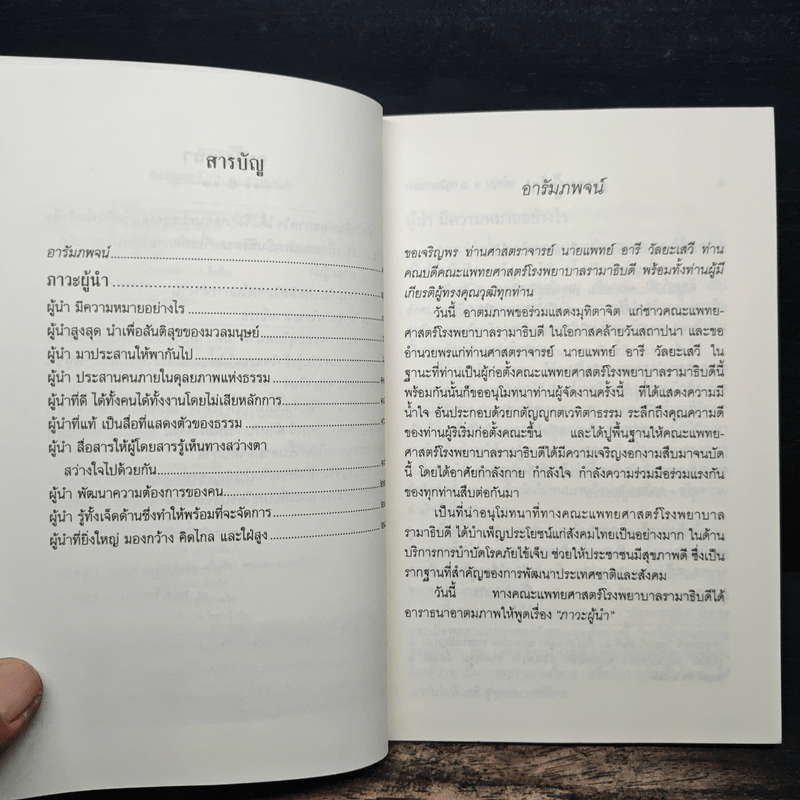 สารบัญ
อารัมภพจน์
ภาวะผู้นำ
ผู้นำ มีความหมายอย่างไร
ผู้นำสูงสุด นำเพื่อสันติสุขของมวลมนุษย์
ผู้นำ มาประสานให้พากันไป
ผู้นำ ประสานคนภายในดุลยภาพแห่งธรรม
ผู้นำที่ดี ได้ทั้งคนได้ทั้งงานโดยไม่เสียหลักการ
ผู้นำที่แท้ เป็นสื่อที่แสดงตัวของธรรม
ผู้นำ สื่อสารให้ผู้โดยสารรู้เห็นทางสว่างตา
สว่างใจไปด้วยกัน
ผู้นำ พัฒนาความต้องการของคน
ผู้นำ รู้ทั้งเจ็ดด้านซึ่งทำให้พร้อมที่จะจัดการ
ผู้นำที่ยิ่งใหญ่ มองกว้าง คิดไกล และใฝ่สูง
อารัมภพจน์
ขอเจริญพร ท่านศาสตราจารย์ นายแพทย์ อารี วัลยะเสวี ท่าน
คณบดีคณะแพทยศาสตร์โรงพยาบาลรามาธิบดี พร้อมทั้งท่านผู้มี
เกียรติผู้ทรงคุณวุฒิทุกท่าน
วันนี้ อาตมภาพขอร่วมแสดงมุทิตาจิต แก่ชาวคณะแพทย-
ศาสตร์โรงพยาบาลรามาธิบดี ในโอกาสคล้ายวันสถาปนา และขอ
อำนวยพรแก่ท่านศาสตราจารย์ นายแพทย์ อารี วัลยะเสวี ใน
ฐานะที่ท่านเป็นผู้ก่อตั้งคณะแพทยศาสตร์โรงพยาบาลรามาธิบดีนี้
พร้อมกันนั้นก็ขออนุโมทนาท่านผู้จัดงานครั้งนี้ ที่ได้แสดงความมี
น้ำใจ อันประกอบด้วยกตัญญูกตเวทิตาธรรม ระลึกถึงคุณความดี
ของท่านผู้ริเริ่มก่อตั้งคณะขึ้น และได้ปูพื้นฐานให้คณะแพทย-
ศาสตร์โรงพยาบาลรามาธิบดีได้มีความเจริญงอกงามสืบมาจนบัด
นี้ โดยได้อาศัยกำลังกาย กำลังใจ กำลังความร่วมมือร่วมแรงกัน
ของทุกท่านสืบต่อกันมา
เป็นที่น่าอนุโมทนาที่ทางคณะแพทยศาสตร์โรงพยาบาล
รามาธิบดี ได้บำเพ็ญประโยชน์แก่สังคมไทยเป็นอย่างมาก ในด้าน
บริการการบำบัดโรคภัยไข้เจ็บ ช่วยให้ประชาชนมีสุขภาพดี ซึ่งเป็น
รากฐานที่สำคัญของการพัฒนาประเทศชาติและสังคม
วันนี้ ทางคณะแพทยศาสตร์โรงพยาบาลรามาธิบดีได้
อาราธนาอาตมภาพให้พูดเรื่อง "ภาวะผู้นำ"